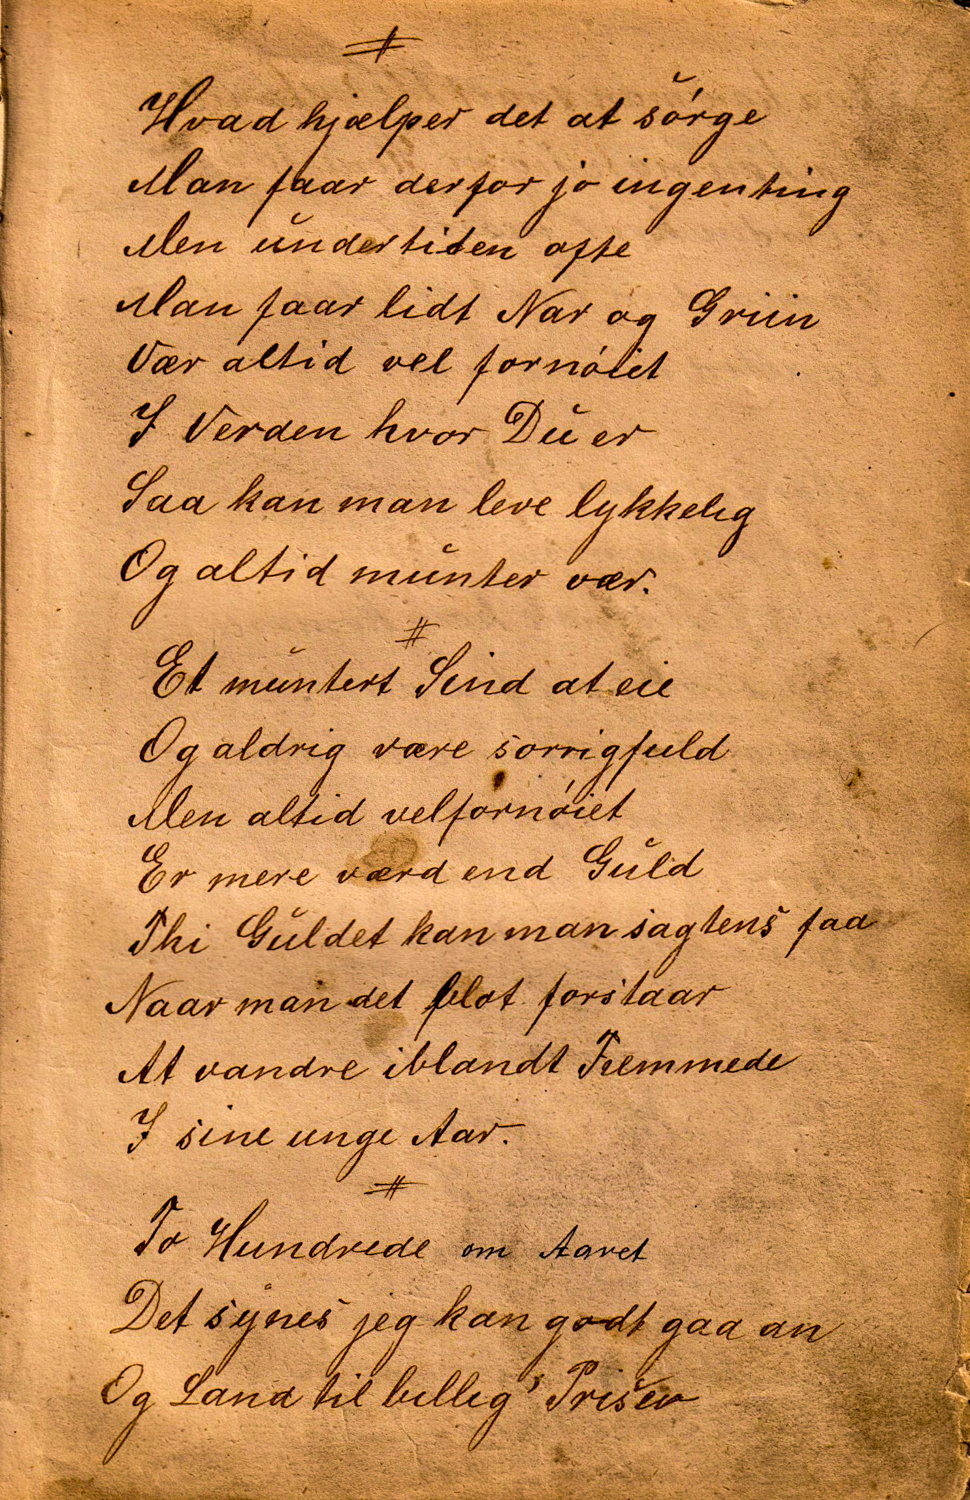 Hvad hjælper det at sórge
Man faar derfor jo ingenting
Men undertiden ofte
Man faar lidt Nar og Griin
Vær altid vel fornóiet
I Verden hvor Du er
Saa kan man leve lykkelig
Og altid munter vær.
Et muntert Sind at eie
Og aldrig være sorrigfuld
Men altid velfornóiet
Er mere værd end Guld
Thi Guldet kan man sagtens faa
Naar man det blot forstaar
At vandre iblandt Fremmede
I sine unge Aar.
To Hundrede om Aaret
Det synes jeg kan godt gaa an
Og Land til billig Priser